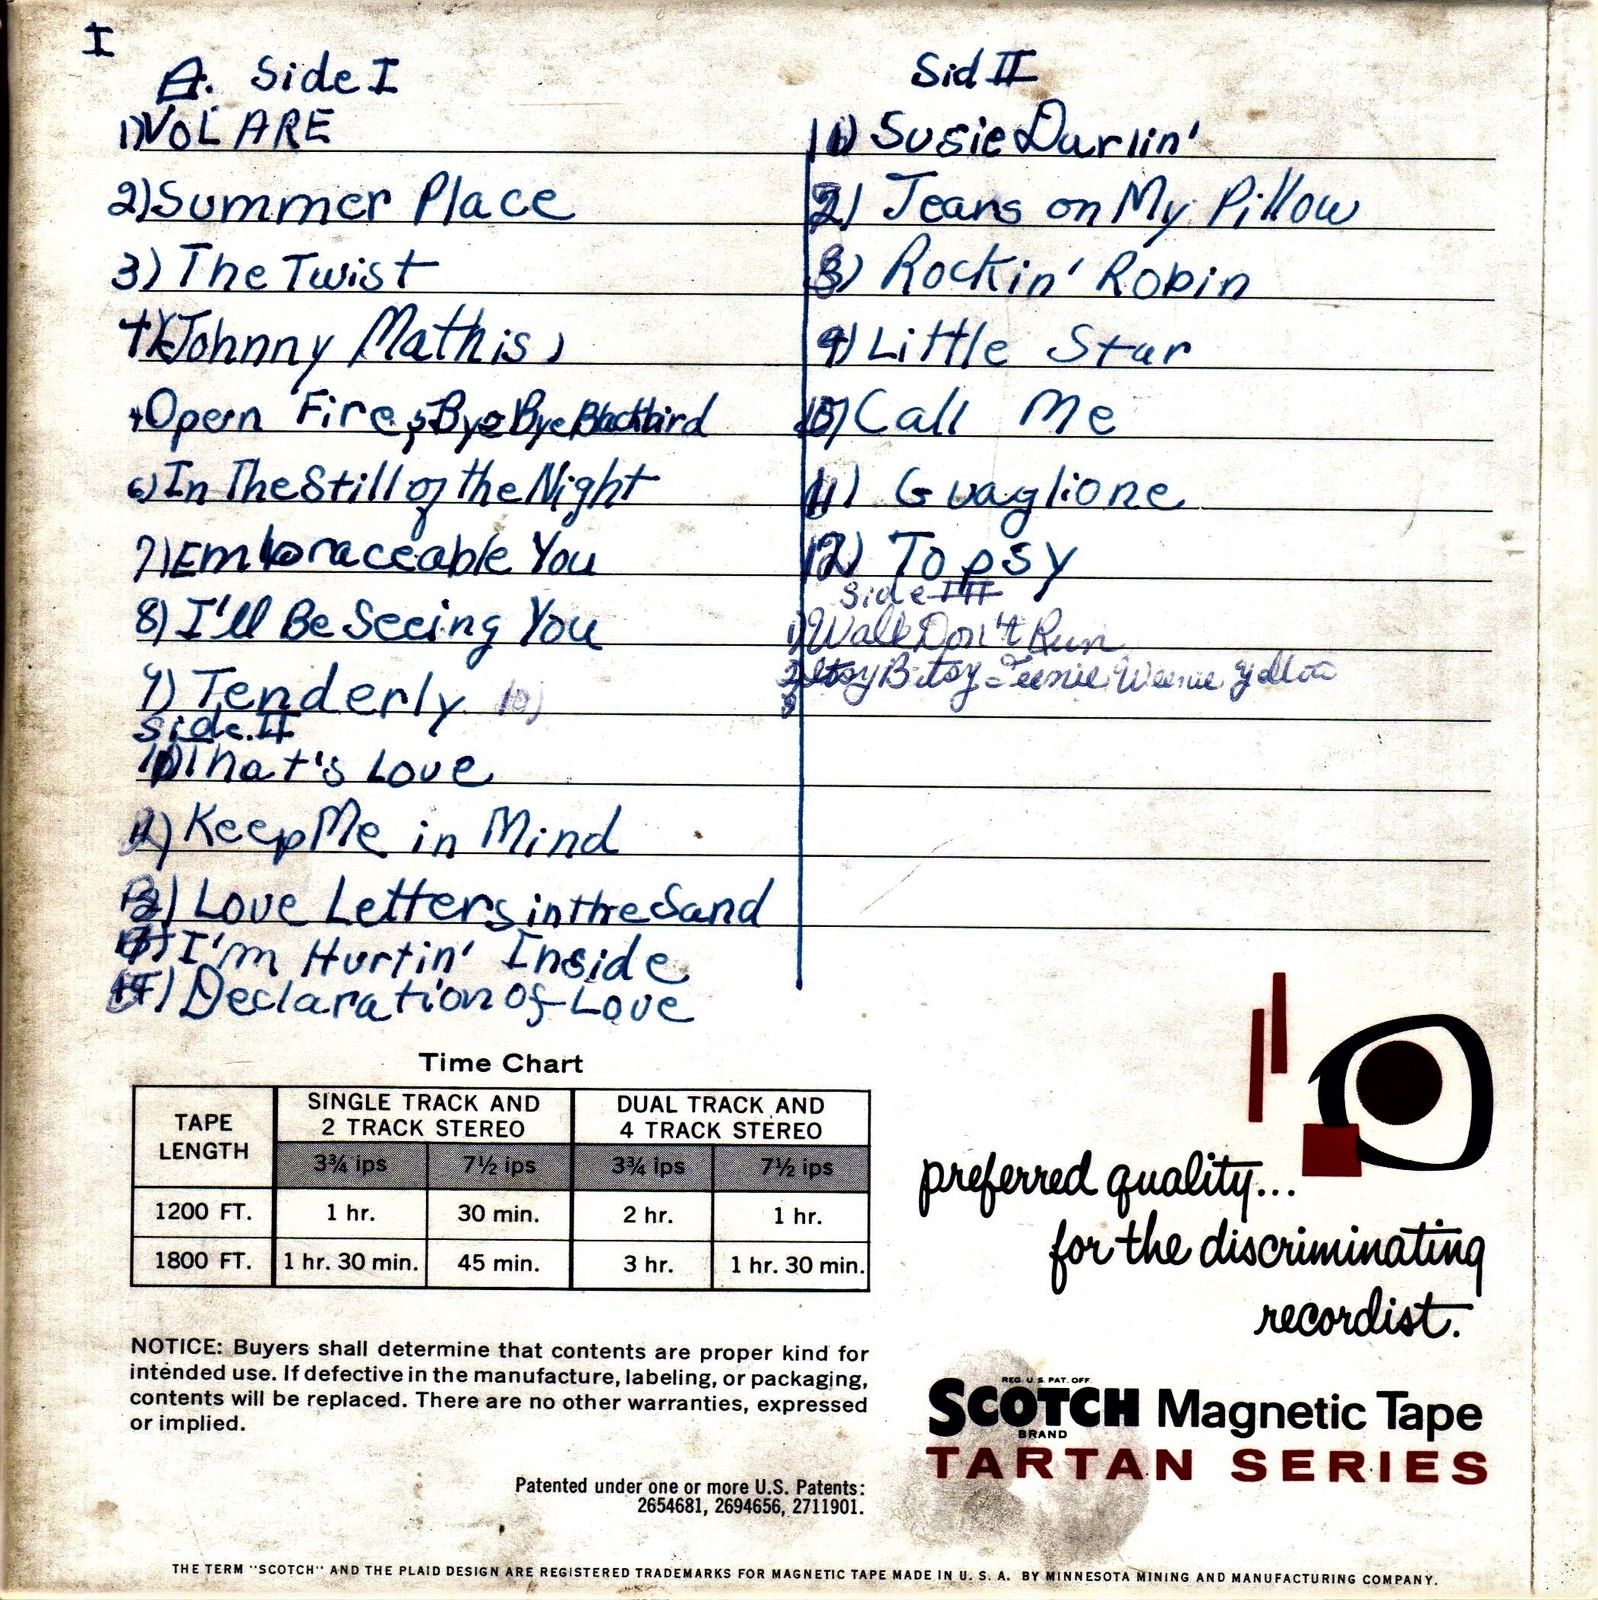 I
A. Side I
1) VOLARE
2) Summer Place
3) The Twist
4) Johnny Mathis,
Open Fire, Bye Bye Blackbird
6) In The Still of the Night
7) Embraceable You
8) I'll Be Seeing You
9) Tenderly 10)
Side II
10) That's Love
Keep Me in Mind
Love Letters in the Sand
I'm Hurtin' Inside
Declaration of Love
Sid II
Susie Darlin'
2) Tears on My Pillow
3) Rockin' Robin
4) Little Star
Call Me
11) Guaglione
12) Topsy
Side III
1) Walk Don't Run
2 Itsy Bitsy-Teenie Weenie Yellow
3
Time Chart
TAPE LENGTH
SINGLE TRACK AND
2 TRACK STEREO
DUAL TRACK AND
4 TRACK STEREO
3¾ ips 7½ ips 3¾ ips 7½ ips
1200 FT. 1 hr. 30 min. 2 hr. 1 hr.
1800 FT. 1 hr. 30 min. 45 min. 3 hr. 1 hr. 30 min.
NOTICE: Buyers shall determine that contents are proper kind for
intended use. If defective in the manufacture, labeling, or packaging,
contents will be replaced. There are no other warranties, expressed
or implied.
Patented under one or more U.S. Patents:
2654681, 2694656, 2711901.
preferred quality...
for the discriminating
recordist.
REG. U.S. PAT. OFF.
SCOTCH Magnetic Tape
BRAND
TARTAN SERIES
THE TERM "SCOTCH" AND THE PLAID DESIGN ARE REGISTERED TRADEMARKS FOR MAGNETIC TAPE MADE IN U. S. A. BY MINNESOTA MINING AND MANUFACTURING COMPANY.